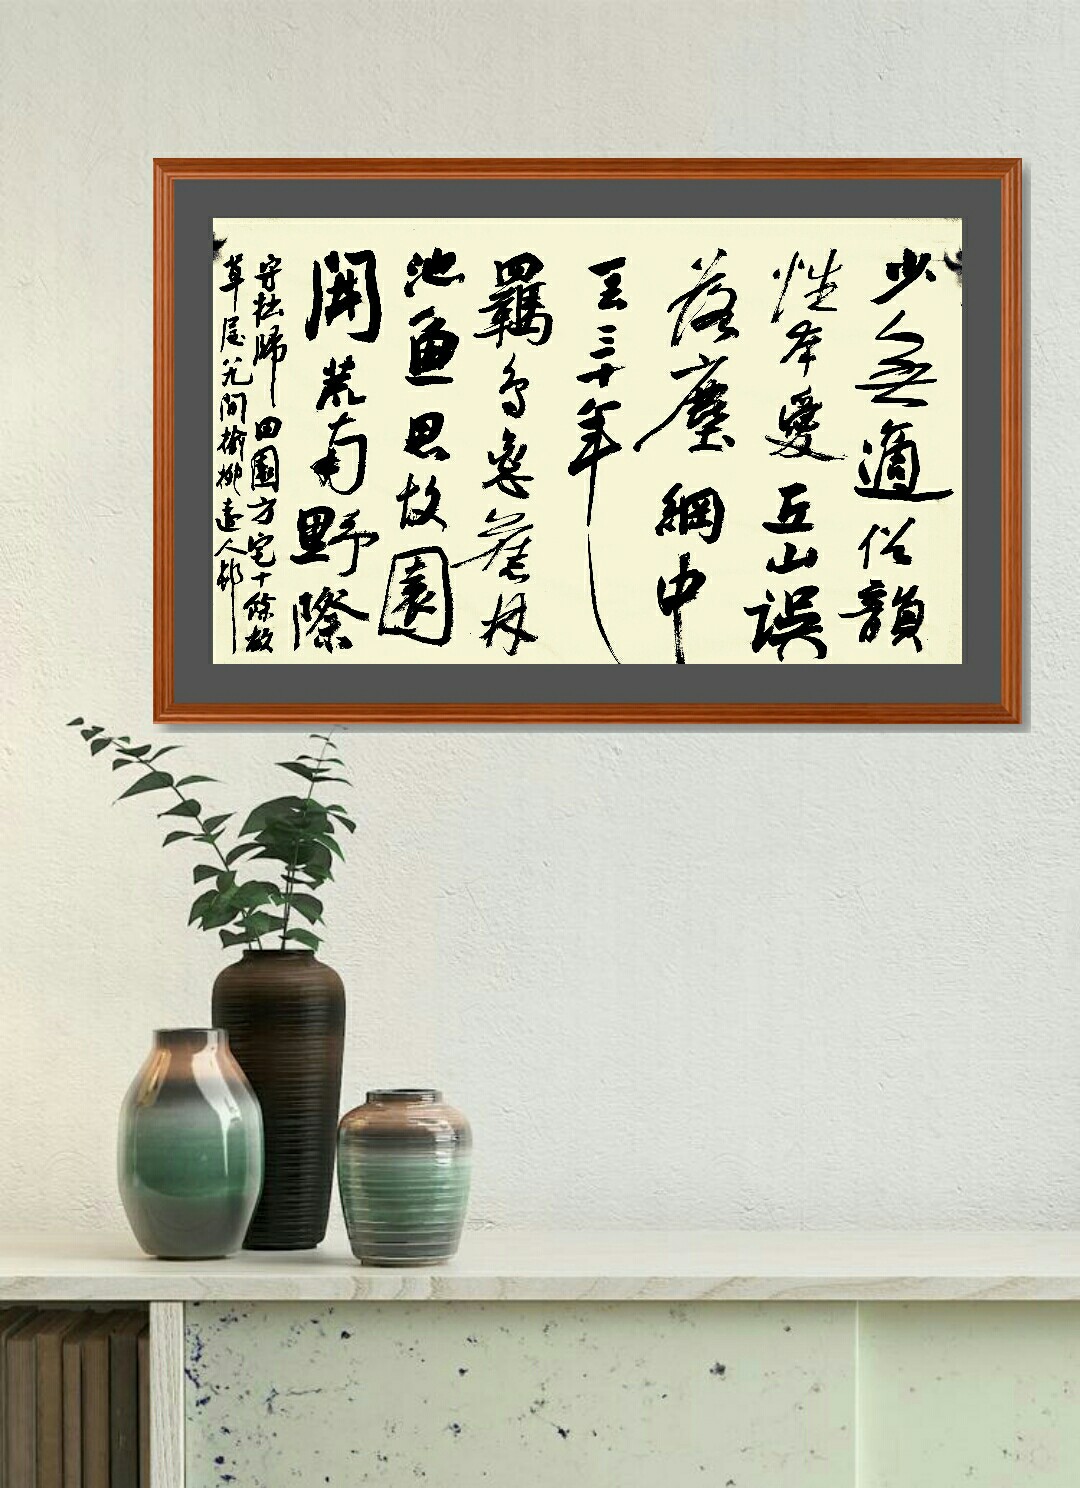 少無適俗韻
性本愛丘山誤
落塵網中
一去三十年
羈鳥戀舊林
池魚思故園
開荒南野際
守拙歸田園方宅十餘畝
草屋八九間榆柳遠人邨